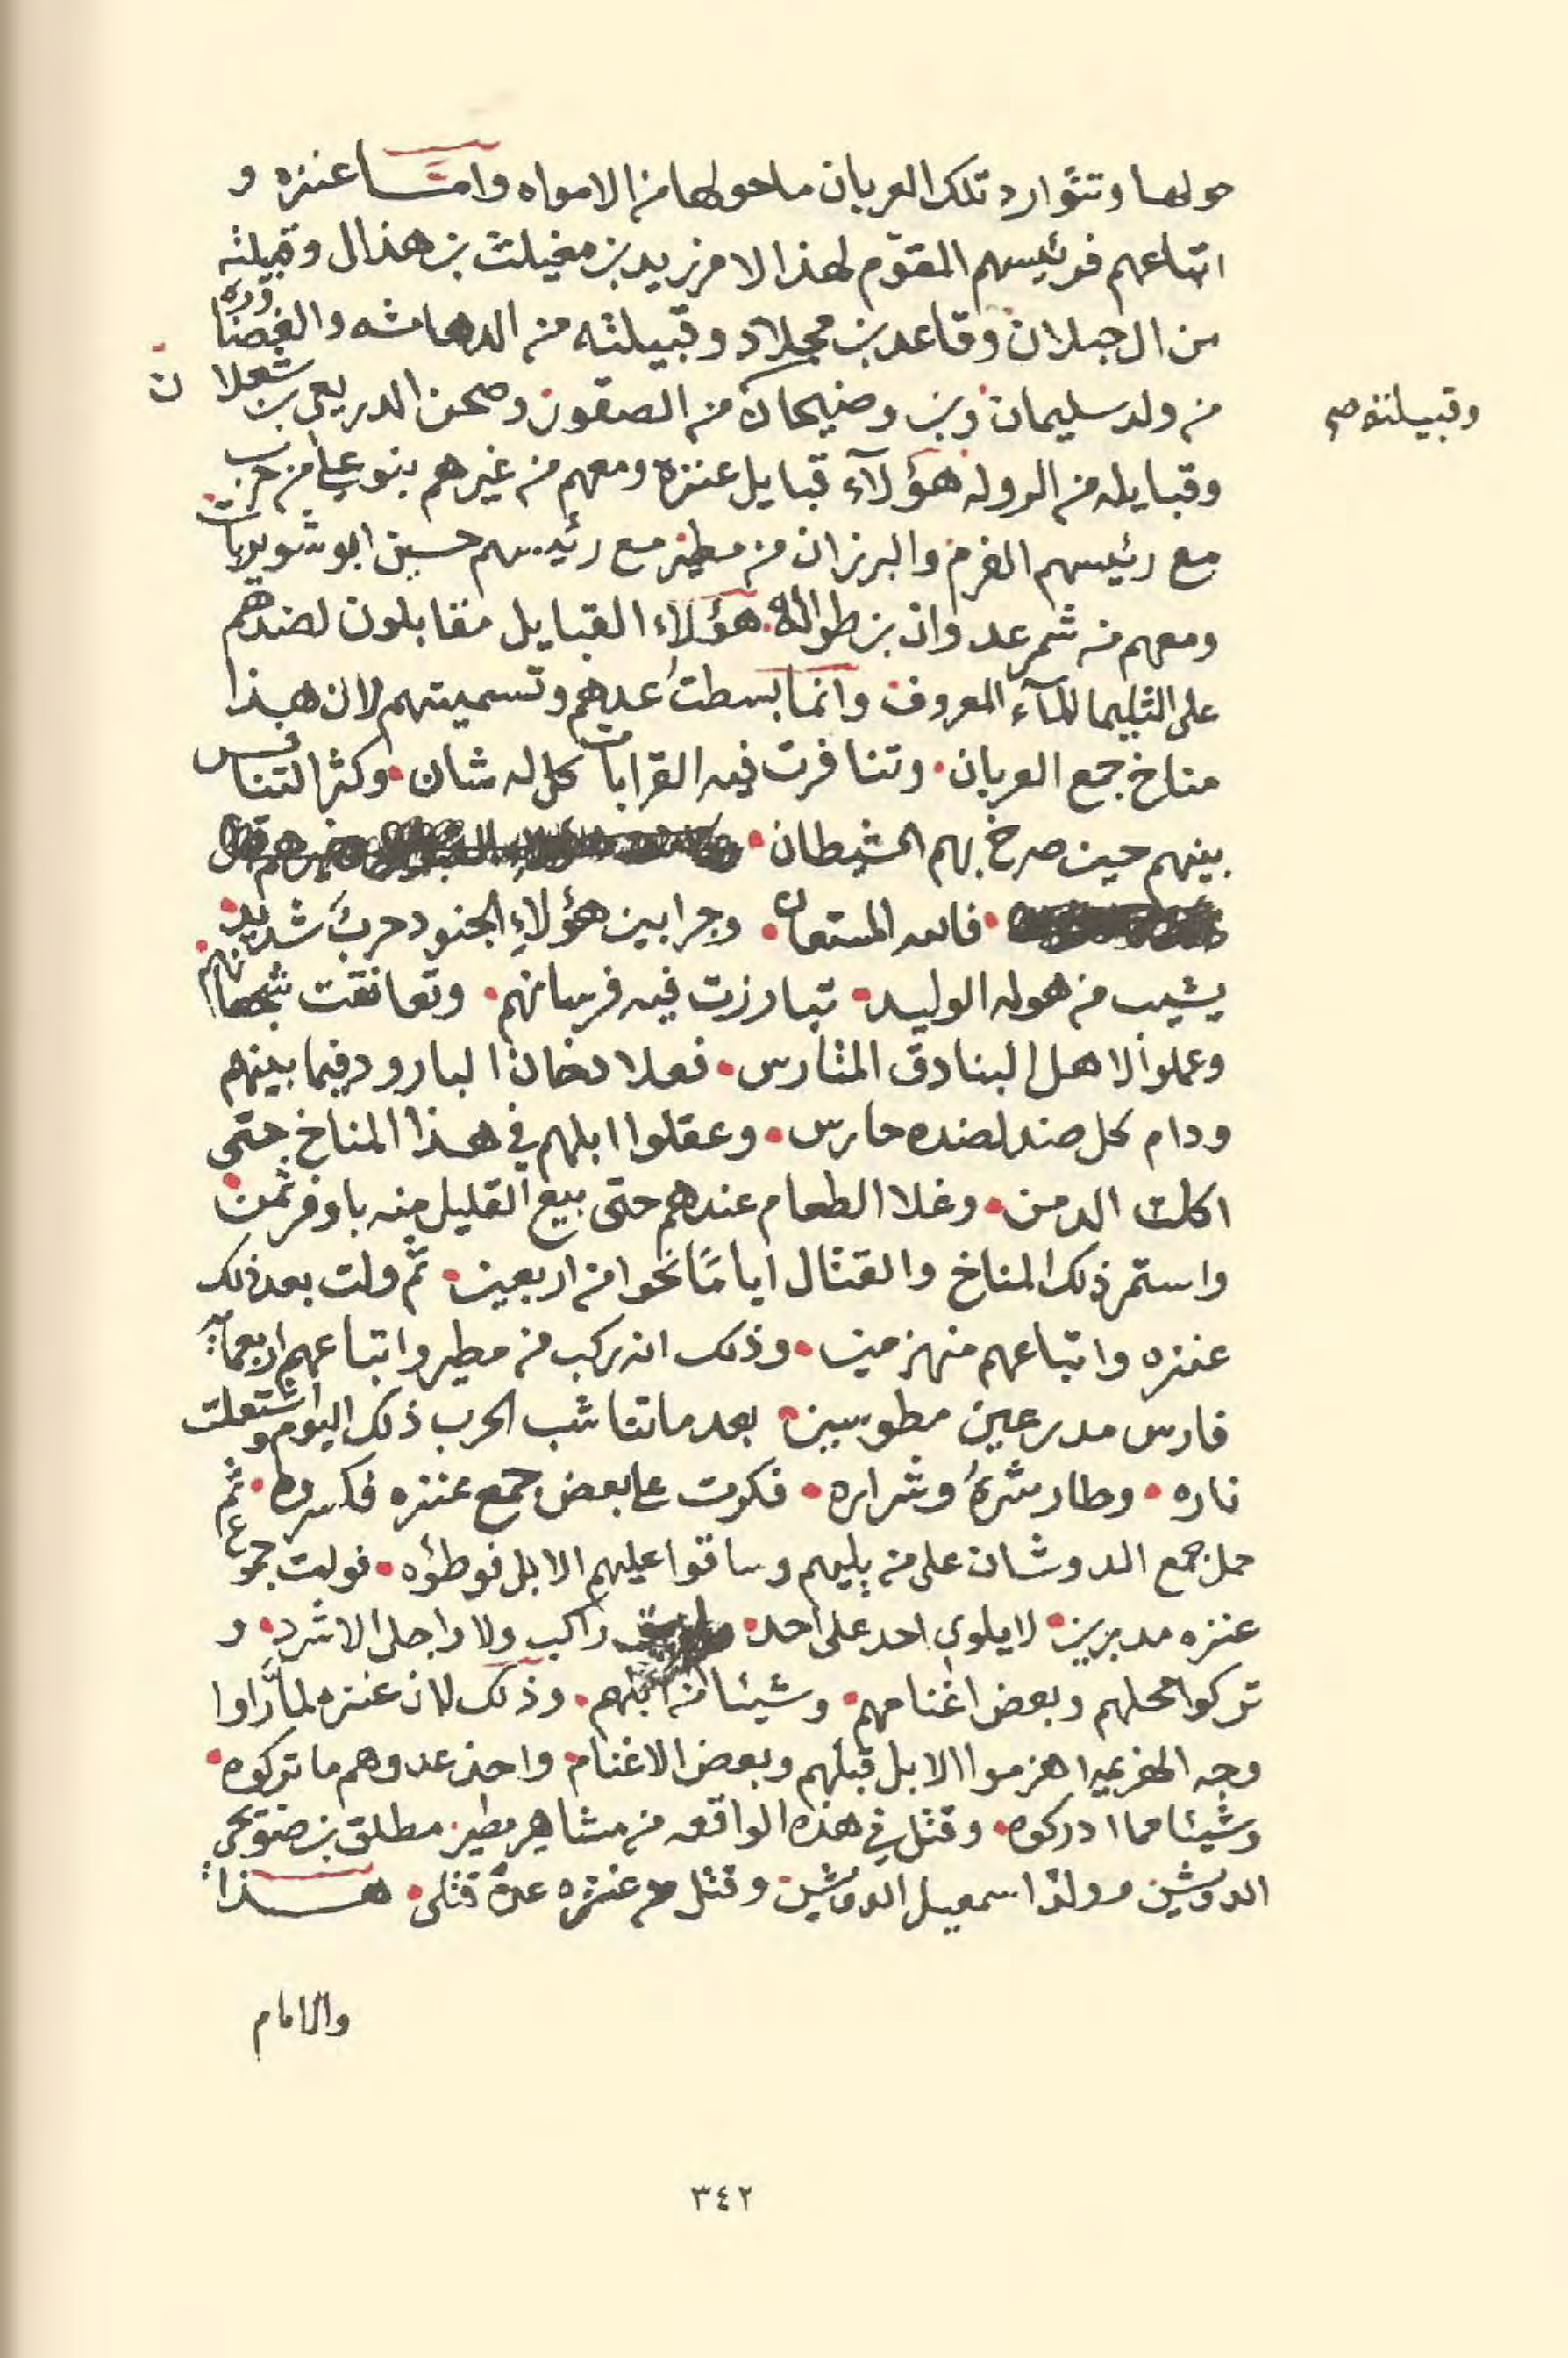 حولها وتتوارد تلك العربان ما حولها من الامواه وامـــا عنزه و
اتباعهم فرئيسهم المقوّم لهذا الامر زيد بن مغيلث بن هذال وقبيلته
من ال جبلان وقاعد بن مجلاد وقبيلته من الدهامشه والغضاوره
من ولد سليمان وبن وضيحان من الصقور وصحن الدريعي بن شعلان
وقبيلته صح
وقبايله من الروله هؤلآء قبايل عنزه ومعهم من غيرهم بنو علي من حرب
مع رئيسهم الفرم والبرزان من مطير مع رئيسهم حسين ابو شويربات
ومعهم من شمر عدوان بن طواله. هؤلاء القبايل مقابلون لضدهم
على الثليما المآء المعروف وانما بسطت عدهم وتسميتهم لان هذا
مناخ جمع العربان. وتنافرت فيه القرابات كل له شان. وكثر التنافس
بينهم حين صرخ بهم الشيطان.
. فالله المستعان. وجرا بين هؤلاءِ الجنود حربٌ شديد.
يشيب من هوله الوليد. تبارزت فيه فرسانهم. وتعانقت شجعانهم.
وعملوا لاهل البنادق المتارس. فعلا دخان البارود فيما بينهم
ودام كل ضد لضده حارس. وعقلوا ابلهم في هذا المناخ حتى
اكلت الدمن. وغلا الطعام عندهم حتى بيع القليل منه باوفر ثمن.
واستمر ذلك المناخ والقتال اياماً نحوا من اربعين. ثم ولت بعد ذلك
عنزه واتباعهم منهزمين. وذلك انه ركب من مطير واتباعهم اربعمآية
فارس مدرعين مطوسين. بعد ما تناشب الحرب ذلك اليوم واشتعلت
ناره. وطار شره وشراره. فكرت على بعض جمع عنزه فكسروه. ثم
حمل جمع الدوشان على من يليهم وساقوا عليهم الابل فوطؤه. فولت جموع
عنزه مدبرين. لا يلوي احد على احد. راكب ولا راجل الا شرد. و
تركوا محلهم وبعض اغنامهم. وشيئا من ابلهم. وذلك لان عنزه لما رَاوا
وجه الهزيمه هزموا الابل قبلهم وبعض الاغنام. واخذ عدوهم ما تركوه.
وشيئا مما ادركوه. وقتل في هذه الواقعه من مشاهير مطير. مطلق بن
الدويش وولد اسمعيل الدويش. وقتل من عنزه عدة قتلى. هـــذا
والامام
٣٤٢